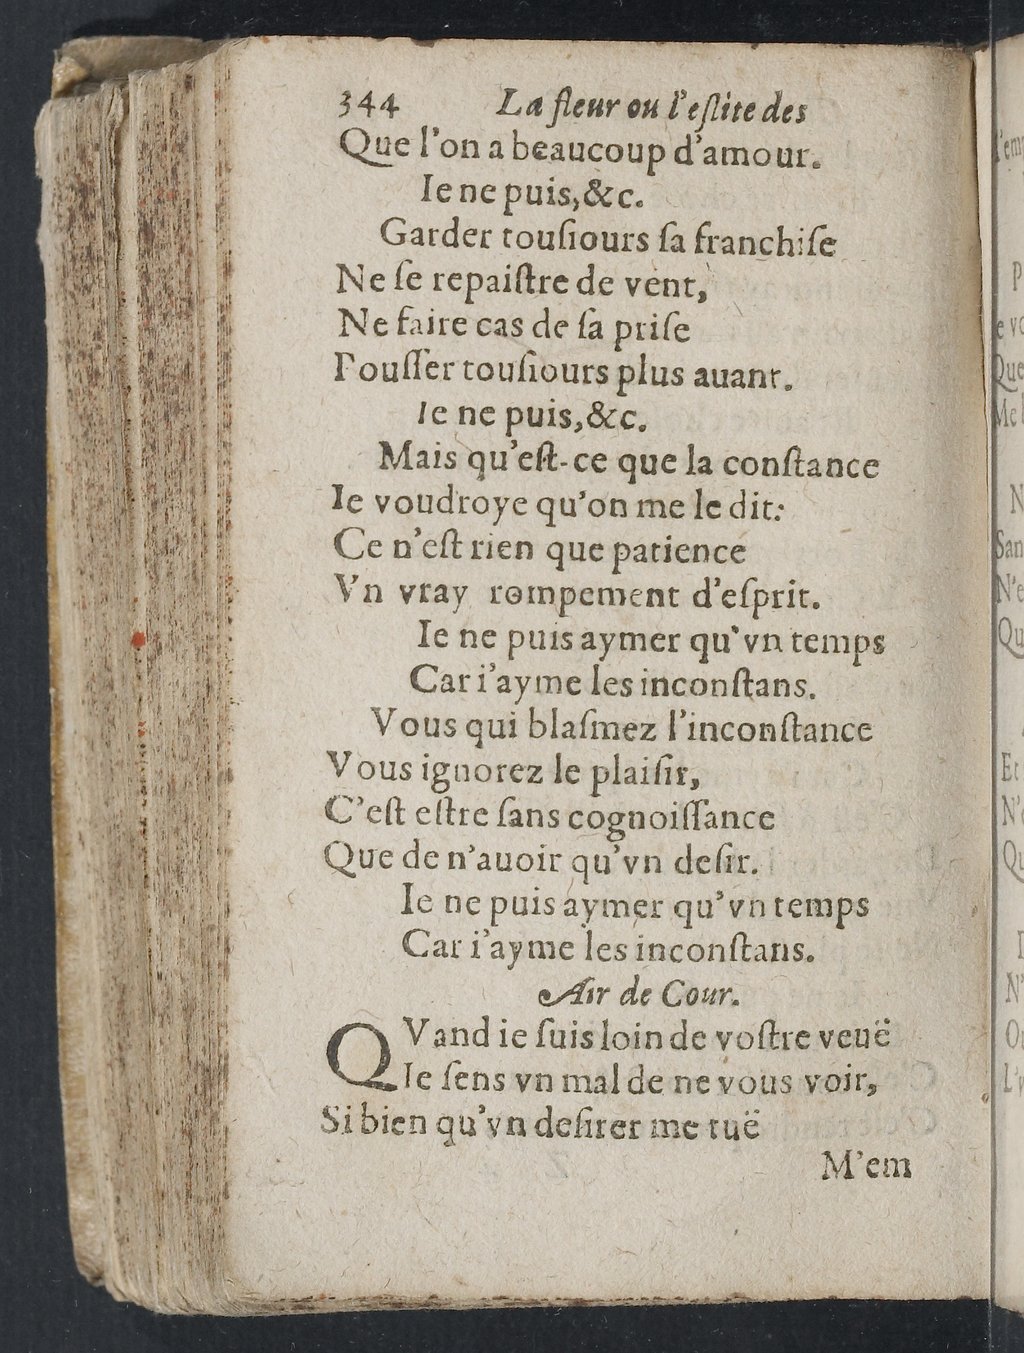 344 La fleur ou l'eſlite des
Que l'on a beaucoup d'amour.
Ie ne puis, &c.
Garder touſiours ſa franchiſe
Ne ſe repaiſtre de vent,
Ne faire cas de ſa priſe
Pouſſer touſiours plus auant.
Ie ne puis, &c.
Mais qu'eſt-ce que la conſtance
Ie voudroye qu'on me le dit:
Ce n'eſt rien que patience
Vn vray rompement d'eſprit.
Ie ne puis aymer qu'vn temps
Car i'ayme les inconſtans.
Vous qui blaſmez l'inconſtance
Vous ignorez le plaiſir,
C'eſt eſtre ſans cognoiſſance
Que de n'auoir qu'vn deſir.
Ie ne puis aymer qu'vn temps
Car i'ayme les inconſtans.
Air de Cour.
QVand ie ſuis loin de voſtre veuë
Ie ſens vn mal de ne vous voir,
Si bien qu'vn deſirer me tuë
M'em